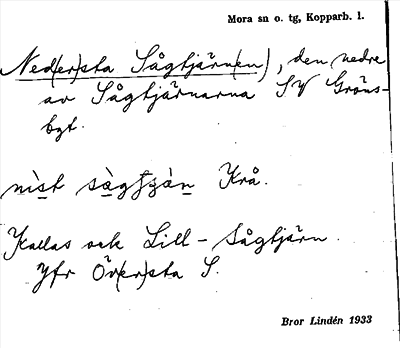 Mora sn o. tg, Kopparb. l.
Ned(er)sta Sågtjärn(en), den nedre
av Sågtjärnarna SV Gräns-
bgt.
Krå.
Kallas ock Lill-Sågtjärn.
Jfr Öv(er)sta S.
Bror Lindén 1933